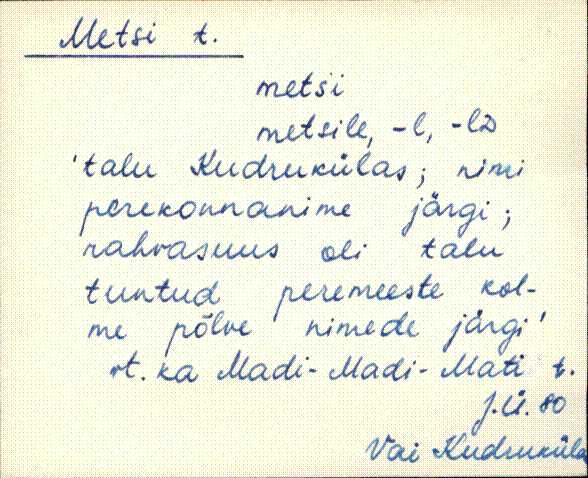 Metsi t.
metsi
metsile, -l, -lD
'talu Kudrukülas; nimi
perekonnanime järgi;
rahvasuus oli talu
tuntud peremeeste kol-
me põlve nimede järgi'
vt. ka Madi-Madi-Mati t.
J.Ü. 80
Vai Kudruküla